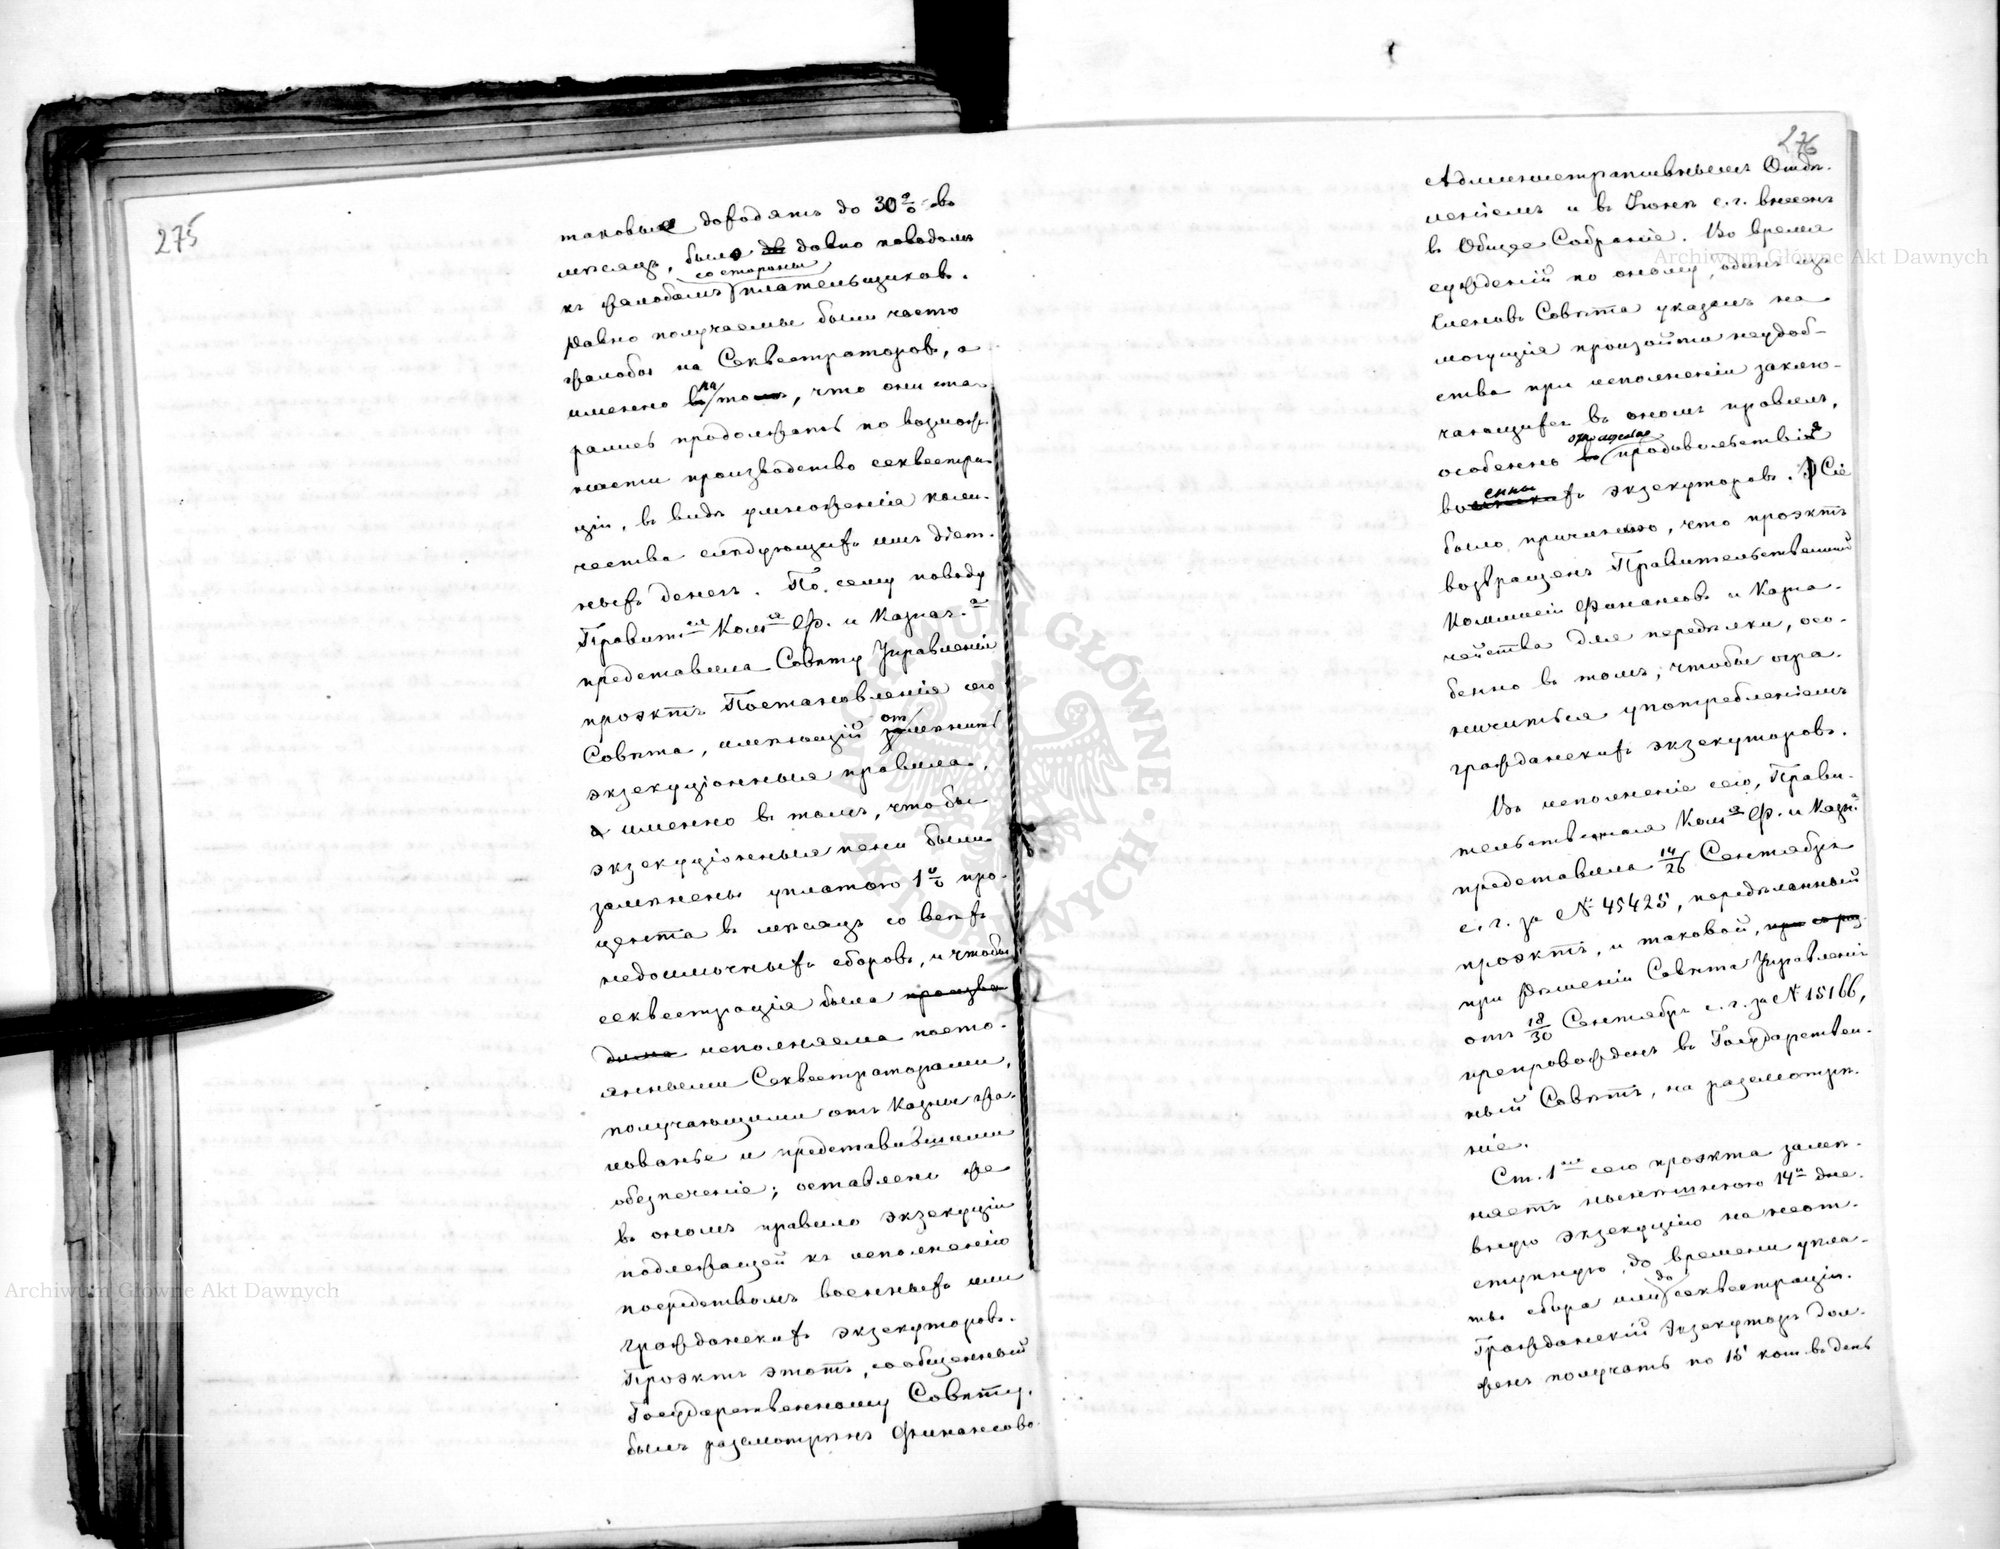 275
таковые доходятъ до 30% въ
мѣсяцъ, было давно поводомъ
къ жалобамъ со стороны плательщиковъ.
Равно получаемы были часто
жалобы на Секвестраторовъ, а
именно на то, что они ста-
рались продолжать по возмож-
ности производство секвестра-
ціи, въ видѣ умноженія коли-
чества слѣдующихъ имъ діэт-
ныхъ денегъ. По сему поводу
Правит. Ком. Ф. и Казнач.
представила Совѣту Управленія
проэктъ Постановленія сего
Совѣта, имѣющій отмѣнить
экзекуціонныя правила,
а именно въ томъ, чтобы
экзекуціонныя пени были
замѣнены уплатою 1% про-
цента въ мѣсяцъ со всѣхъ
недоимочныхъ сборовъ, и чтобы
секвестрація была произво
дима исполняема посто-
янными Секвестраторами,
получающими отъ Казны жа-
лованье и представившими
обезпеченіе; оставлено же
въ ономъ правило экзекуціи
подлежащей къ исполненію
посредствомъ военныхъ или
гражданскихъ экзекуторовъ.
Проэктъ этотъ, сообщенный
Государственному Совѣту,
былъ разсмотрѣнъ Финансово-
276
Административнымъ Отдѣ-
леніемъ и въ Іюнѣ с. г. внесенъ
въ Общее Собраніе. Во время
сужденій по оному, одинъ изъ
Членовъ Совѣта указалъ на
могущія произойти неудоб-
ства при исполненіи заклю-
чающихся въ ономъ правилъ,
особенно относительно продовольствія
военныхъ экзекуторовъ. Сіе
было причиною, что проэктъ
возвращенъ Правительственной
Коммисіи Финансовъ и Казна-
чейства для передѣлки, осо-
бенно въ томъ, чтобы огра-
ничиться употребленіемъ
гражданскихъ экзекуторовъ.
Въ исполненіе сего, Прави-
тельственная Ком. Ф. и Казн.
представила 14/26 Сентября
с. г. за № 45425, передѣланный
проэктъ, и таковой,
при рѣшеніи Совѣта Управленія
отъ 18/30 Сентября с. г. за № 15166,
препровожденъ въ Государствен-
ный Совѣтъ, на разсмотрѣ-
ніе.
Ст. 1 сего проэкта замѣ-
няетъ нынѣшнюю 14и дне-
вную экзекуцію на неот-
ступную, до времени упла-
ты сбора или до секвестраціи.
Гражданскій Экзекуторъ дол-
женъ получать по 15 коп. въ день
Archiwum Główne Akt Dawnych
Archiwum Główne Akt Dawnych
ARCHIWUM GŁÓWNE · AKT DAWNYCH ·